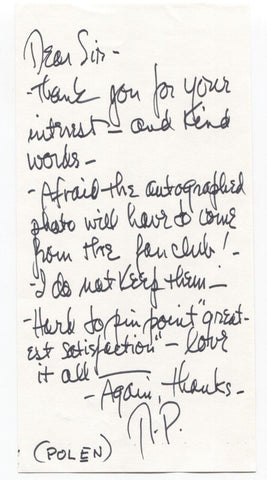 Dear Sir -
-Thank you for your
interest - and kind
words -
-Afraid the autographed
photo will have to come
from the fan club! -
-I do not keep them -
-Hard to pin point "great-
est satisfaction" - love
it all
-Again, thanks -
N.P.
(POLEN)